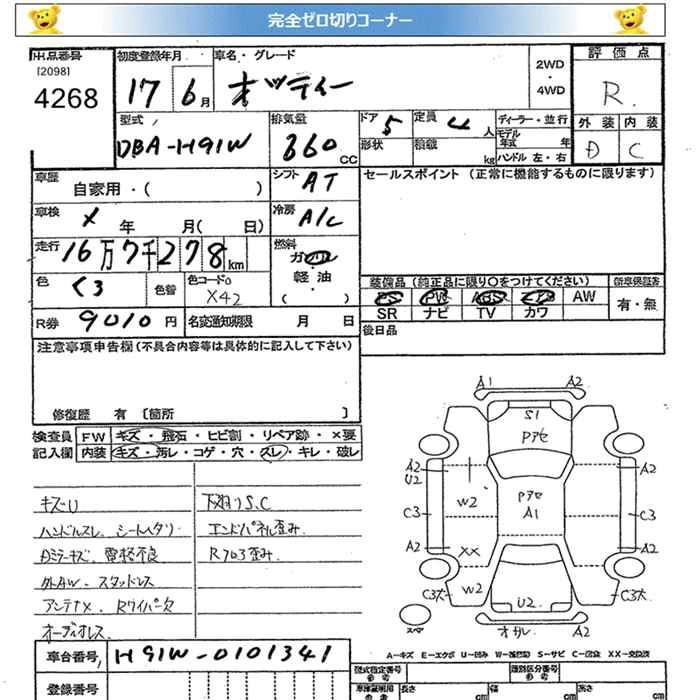 完全ゼロ切りコーナー
出品番号 初度登録年月 車名・グレード 2WD・4WD 評価点
[2098]
4268 17 6月 オッティー R
型式 排気量 ドア 5 定員 4人 ディーラー・並行 外装 内装
DBA-H91W 660cc 形状 積載 kg モデル年式 年 D C
ハンドル 左・右
車歴 自家用・( ) シフト AT セールスポイント (正常に機能するものに限ります)
車検 × 年 月( 日) 冷房 A/C
走行 16万7千278km 燃料 ガソリン
軽油
( )
色 クロ 色替 色コードNo X42 装備品 (純正品に限り○をつけてください) 新車保証書
PS PW ABS エアB AW 有・無
R券 9010円 名変通知期限 月 日 SR ナビ TV カワ
注意事項申告欄(不具合内容等は具体的に記入して下さい) 後日品
修復歴 有 [箇所 ]
検査員 FW キズ・飛石・ヒビ割・リペア跡・×要
記入欄 内装 キズ・汚レ・コゲ・穴・スレ・キレ・破レ
キズU 下廻りS.C
ハンドルスレ、シートヘタリ エンドパネル歪み
Dミラーキズ、電格不良 Rフロア歪み
外AW、スタッドレス
アンテナ×、Rワイパー欠
オーディオレス
A1 A2
S1
Pアセ
A2 A2
U2
W2 Pアセ
A1
C3 C3
A2 XX A2
W2
C3大 C3大
U2
スペア オサレ A2
A=キズ E=エクボ U=凹み W=補修跡 S=サビ C=腐食 XX=交換済
車台番号 H91W-0101341
登録番号
型式指定番号 類別区分番号
参考
車庫証明用 長さ cm 幅 cm 高さ cm
参考